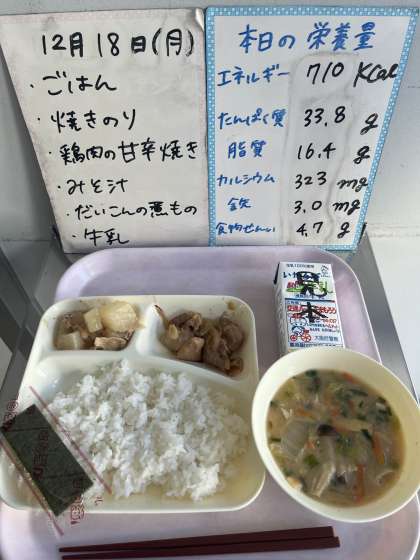 12月18日(月)
・ごはん
・焼きのり
・鶏肉の甘辛焼き
・みそ汁
・だいこんの煮もの
・牛乳
本日の栄養量
エネルギー 710 Kcal
たんぱく質 33.8 g
脂質 16.4 g
カルシウム 323 mg
鉄 3.0 mg
食物せんい 4.7 g
見本
大阪府警察